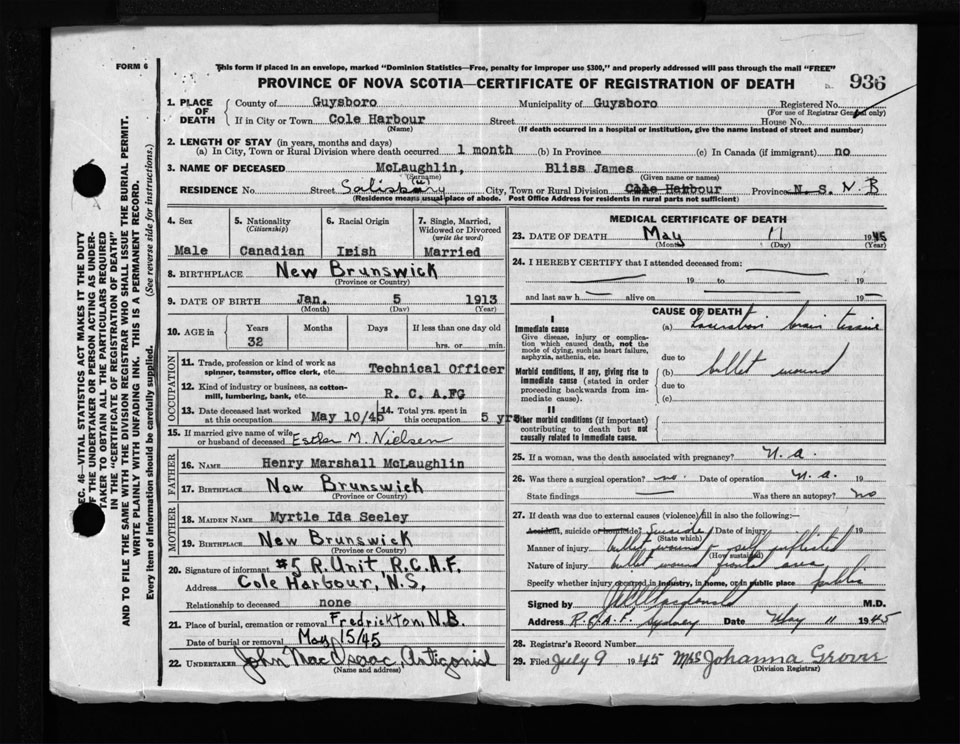 FORM 6
This form if placed in an envelope, marked "Dominion Statistics—Free, penalty for improper use $300," and properly addressed will pass through the mail "FREE"
PROVINCE OF NOVA SCOTIA—CERTIFICATE OF REGISTRATION OF DEATH
936
1. PLACE OF DEATH
County of Guysboro Municipality of Guysboro Registered No.
(For use of Registrar General only)
If in City or Town Cole Harbour Street House No.
(Name) (If death occurred in a hospital or institution, give the name instead of street and number)
2. LENGTH OF STAY (in years, months and days)
(a) In City, Town or Rural Division where death occurred 1 month (b) In Province (c) In Canada (if immigrant) no
3. NAME OF DECEASED McLaughlin, Bliss James
(Surname) (Given name or names)
RESIDENCE No. Street Salisbury (u) City, Town or Rural Division Cole Harbour Province N. S. N B
(Residence means usual place of abode. Post Office Address for residents in rural parts not sufficient)
4. Sex
Male
5. Nationality
(Citizenship)
Canadian
6. Racial Origin
Irish
7. Single, Married, Widowed or Divorced
(write the word)
Married
8. BIRTHPLACE New Brunswick
(Province or Country)
9. DATE OF BIRTH Jan. 5 1913
(Month) (Day) (Year)
10. AGE in Years Months Days If less than one day old
32 hrs. or min.
OCCUPATION
11. Trade, profession or kind of work as spinner, teamster, office clerk, etc. Technical Officer
12. Kind of industry or business, as cotton-mill, lumbering, bank, etc. R. C. A.F
13. Date deceased last worked at this occupation May 10/45
14. Total yrs. spent in this occupation 5 yrs
15. If married give name of wife or husband of deceased Esther M. Nielsen
FATHER
16. NAME Henry Marshall McLaughlin
17. BIRTHPLACE New Brunswick
(Province or Country)
MOTHER
18. MAIDEN NAME Myrtle Ida Seeley
19. BIRTHPLACE New Brunswick
(Province or Country)
20. Signature of informant #5 R. Unit R.C.A.F.
Address Cole Harbour, N.S.
Relationship to deceased none
21. Place of burial, cremation or removal Fredrickton, N.B.
Date of burial or removal May 15/45
22. UNDERTAKER John MacIsaac, Antigonish
(Name and address)
MEDICAL CERTIFICATE OF DEATH
23. DATE OF DEATH May 11 1945
(Month) (Day) (Year)
24. I HEREBY CERTIFY that I attended deceased from:
19 to 19
and last saw h alive on 19
CAUSE OF DEATH
I
Immediate cause
Give disease, injury or complication which caused death, not the mode of dying, such as heart failure, asphyxia, asthenia, etc.
(a) Laceration brain tissue
due to
Morbid conditions, if any, giving rise to immediate cause (stated in order proceeding backwards from immediate cause).
(b) bullet wound
due to
(c)
II
Other morbid conditions (if important) contributing to death but not causally related to immediate cause.
25. If a woman, was the death associated with pregnancy? N. a.
26. Was there a surgical operation? no Date of operation N. a.
State findings Was there an autopsy? no
27. If death was due to external causes (violence) fill in also the following:
Accident, suicide or homicide? Suicide Date of injury 19
(State which)
Manner of injury bullet wound - self inflicted
(How sustained)
Nature of injury bullet wound frontal area
Specify whether injury occurred in industry, in home, or in public place public
Signed by Macdonald M.D.
Address R.C.A.F. Sydney Date May 11 1945
28. Registrar's Record Number
29. Filed July 9 1945 Mrs Johanna Grover
(Division Registrar)
SEC. 46—VITAL STATISTICS ACT MAKES IT THE DUTY
OF THE UNDERTAKER OR PERSON ACTING AS UNDER-
TAKER TO OBTAIN ALL THE PARTICULARS REQUIRED
IN THE "CERTIFICATE OF REGISTRATION OF DEATH"
AND TO FILE THE SAME WITH THE DIVISION REGISTRAR WHO SHALL ISSUE THE BURIAL PERMIT.
WRITE PLAINLY WITH UNFADING INK. THIS IS A PERMANENT RECORD.
Every item of Information should be carefully supplied. (See reverse side for instructions.)